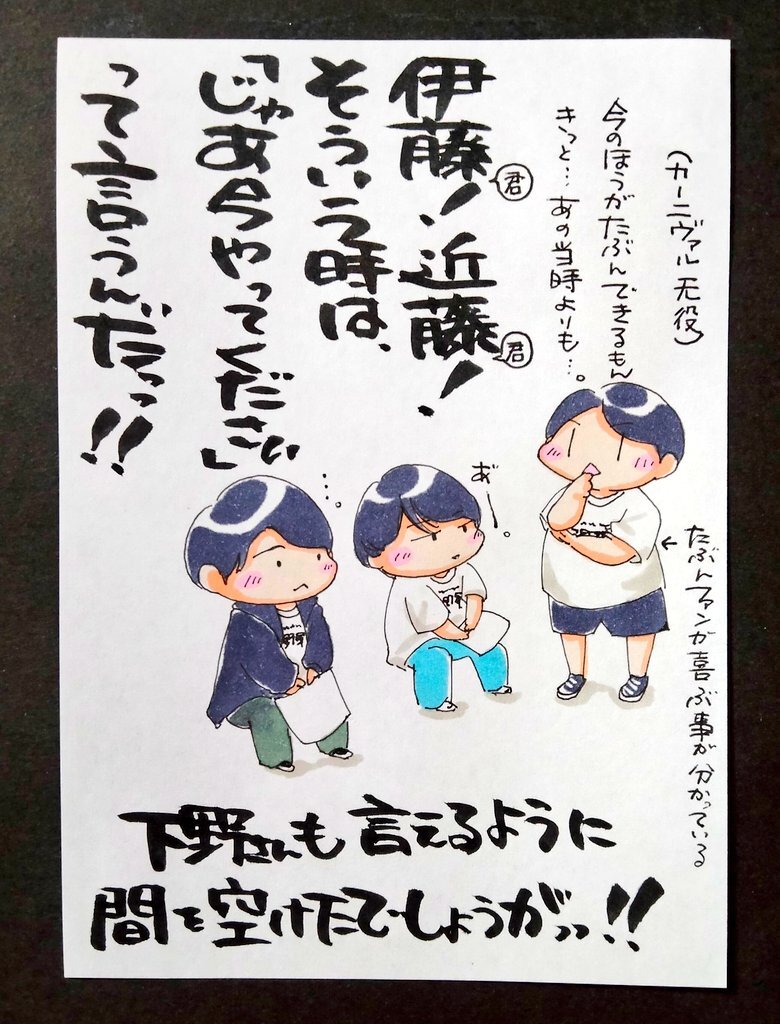 (カーニヴァル 无役)
今のほうがたぶんできるもん
きっと…あの当時よりも…。
伊藤！近藤！
君
君
そういう時は、
「じゃあ今やってください」
って言うんだっっ!!
…。
あ゛ー。
←たぶんファンが喜ぶ事が分かっている
下野さんも言えるように
間を空けたでしょうがッッ!!